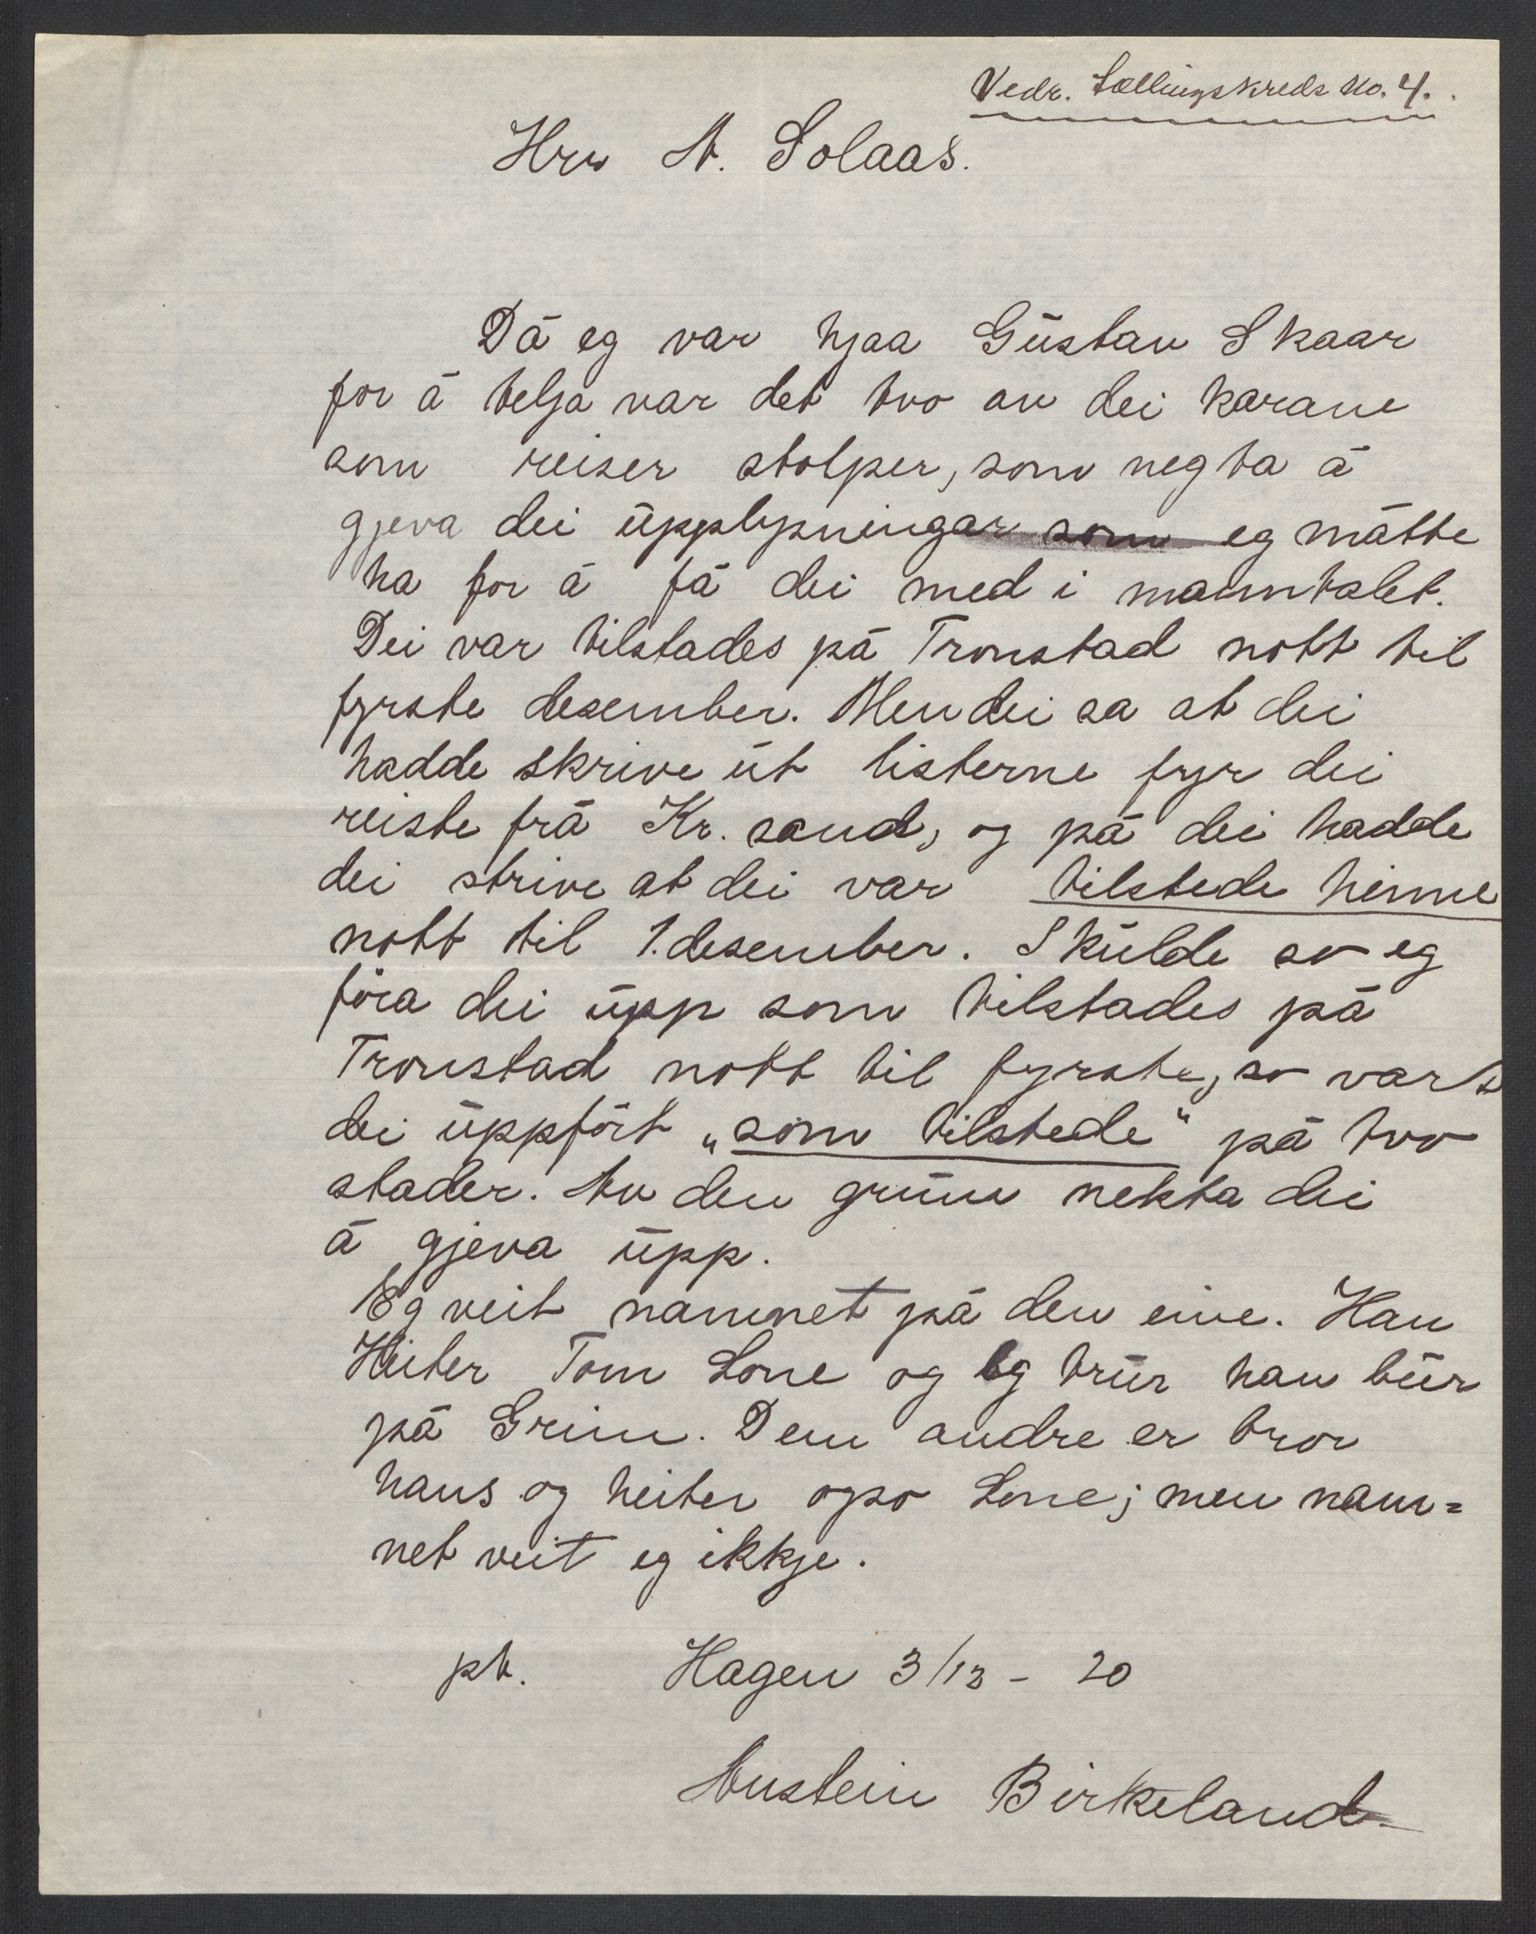 Vedr. Tællingskreds No. 4.
Hrr A. Solaas.
Då eg var hjaa Gustav Skaar
for å telja var det tvo av dei karane
som reiser stolper, som negta å
gjeva dei upplysningar som eg måtte
ha for å få dei med i manntalet.
Dei var tilstades på Tronstad nott til
fyrste desember. Men dei sa at dei
hadde skrive ut listerne fyr dei
reiste frå Kr. sand, og på dei hadde
dei skrive at dei var tilstede heime
nott til 1. desember. Skulde so eg
föra dei upp som tilstades på
Tronstad nott til fyrste, so vart
dei uppfört „som tilstede“ på tvo
stader. Av den grunn nekta dei
å gjeva upp.
Eg veit namnet på den eine. Han
Heiter Tom Lone og eg trur han bur
på Grim. Den andre er bror
hans og heiter ogso Lone; men nam=
net veit eg ikkje.
pt. Hagen 3/12 - 20
Austein Birkeland